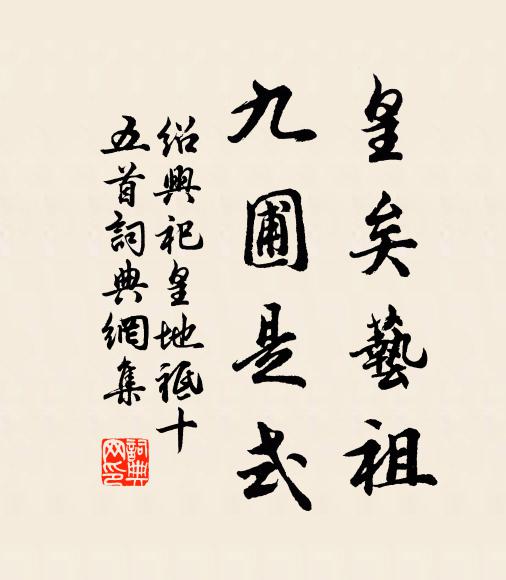 皇矣藝祖
九圃是式
紹興祀皇地祇十
五首詞典網集
詞典
网印